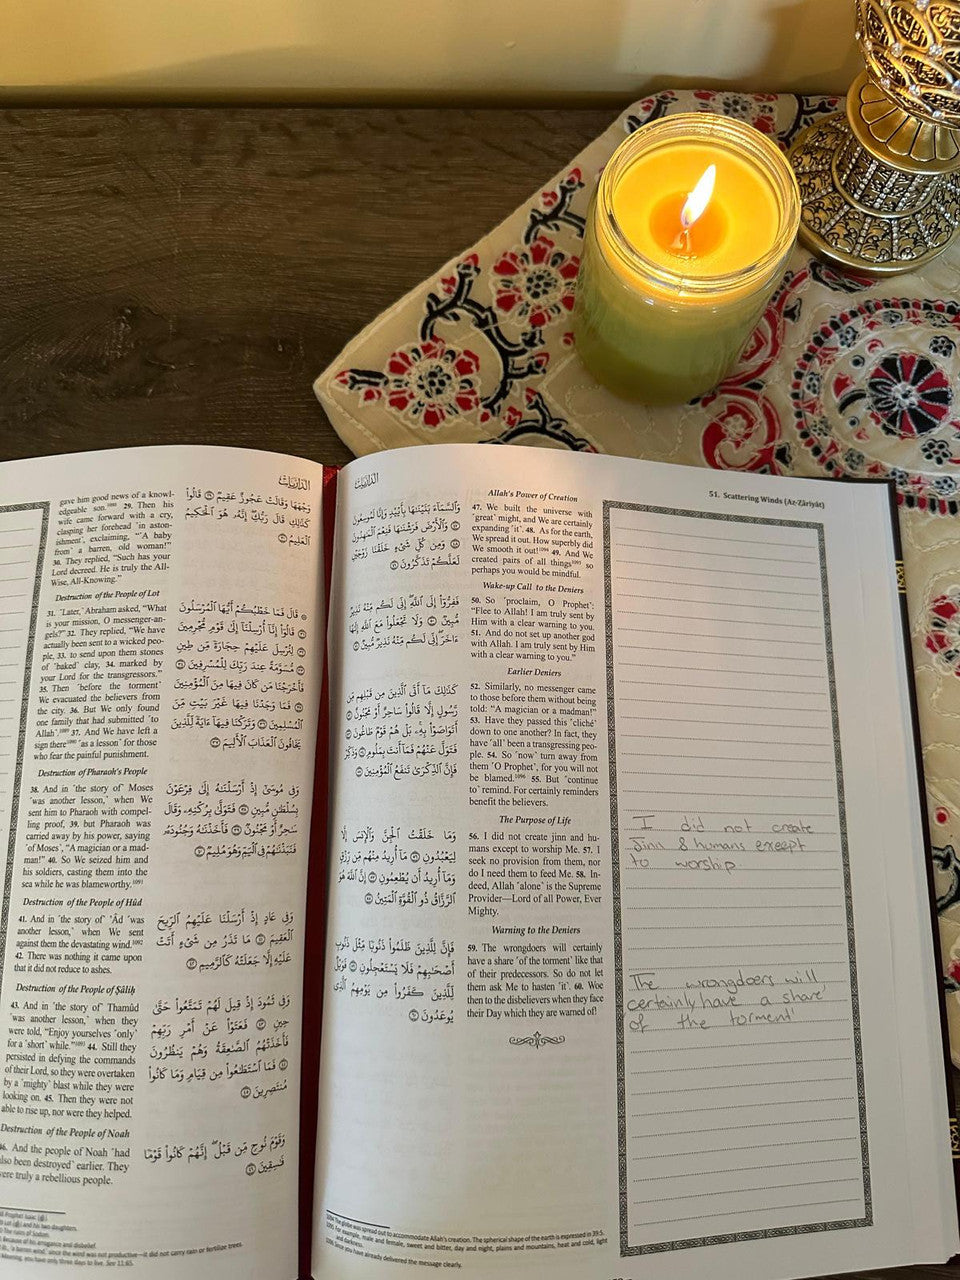 الذاريات
gave him good news of a knowl-
edgeable son.¹⁰⁸⁸ 29. Then his
wife came forward with a cry,
clasping her forehead ˹in aston-
ishment˺, exclaiming, “˹A baby
from˺ a barren, old woman!”
30. They replied, “Such has your
Lord decreed. He is truly the All-
Wise, All-Knowing.”
Destruction of the People of Lot
31. ˹Later,˺ Abraham asked, “What
is your mission, O messenger-an-
gels?” 32. They replied, “We have
actually been sent to a wicked peo-
ple, 33. to send upon them stones
of ˹baked˺ clay, 34. marked by
your Lord for the transgressors.”
35. Then ˹before the torment˺
We evacuated the believers from
the city. 36. But We only found
one family that had submitted ˹to
Allah˺. 37. And We have left a
sign there ˹as a lesson˺ for those
who fear the painful punishment.
Destruction of Pharaoh's People
38. And in the story of Moses
˹was another lesson,˺ when We
sent him to Pharaoh with compel-
ling proof, 39. but Pharaoh was
carried away by his power, saying
˹of Moses˺, “A magician or a mad-
man!” 40. So We seized him and
his soldiers, casting them into the
sea while he was blameworthy.¹⁰⁹¹
Destruction of the People of Hûd
41. And in the story of ˹Âd ˹was
another lesson,˺ when We sent
against them the devastating wind.¹⁰⁹²
42. There was nothing it came upon
that it did not reduce to ashes.
Destruction of the People of Ṣâliḥ
43. And in the story of Thamûd
˹was another lesson,˺ when they
were told, “Enjoy yourselves ˹only˺
for a ˹short˺ while.”¹⁰⁹³ 44. Still they
persisted in defying the commands
of their Lord, so they were overtaken
by a ˹mighty˺ blast while they were
looking on. 45. Then they were not
able to rise up, nor were they helped.
Destruction of the People of Noah
46. And the people of Noah ˹had
also been destroyed˺ earlier. They
were truly a rebellious people.
وَجْهَهَا وَقَالَتْ عَجُوزٌ عَقِيمٌ ۝٢٩ قَالُوا۟
كَذَٰلِكِ قَالَ رَبُّكِ ۖ إِنَّهُۥ هُوَ ٱلْحَكِيمُ
ٱلْعَلِيمُ ۝٣٠
۞ قَالَ فَمَا خَطْبُكُمْ أَيُّهَا ٱلْمُرْسَلُونَ
۝٣١ قَالُوٓا۟ إِنَّآ أُرْسِلْنَآ إِلَىٰ قَوْمٍ مُّجْرِمِينَ
۝٣٢ لِنُرْسِلَ عَلَيْهِمْ حِجَارَةً مِّن طِينٍ
۝٣٣ مُّسَوَّمَةً عِندَ رَبِّكَ لِلْمُسْرِفِينَ ۝٣٤
فَأَخْرَجْنَا مَن كَانَ فِيهَا مِنَ ٱلْمُؤْمِنِينَ
۝٣٥ فَمَا وَجَدْنَا فِيهَا غَيْرَ بَيْتٍ مِّنَ
ٱلْمُسْلِمِينَ ۝٣٦ وَتَرَكْنَا فِيهَآ ءَايَةً لِّلَّذِينَ
يَخَافُونَ ٱلْعَذَابَ ٱلْأَلِيمَ ۝٣٧
وَفِى مُوسَىٰٓ إِذْ أَرْسَلْنَـٰهُ إِلَىٰ فِرْعَوْنَ
بِسُلْطَـٰنٍ مُّبِينٍ ۝٣٨ فَتَوَلَّىٰ بِرُكْنِهِۦ وَقَالَ
سَـٰحِرٌ أَوْ مَجْنُونٌ ۝٣٩ فَأَخَذْنَـٰهُ وَجُنُودَهُۥ
فَنَبَذْنَـٰهُمْ فِى ٱلْيَمِّ وَهُوَ مُلِيمٌ ۝٤٠
وَفِى عَادٍ إِذْ أَرْسَلْنَا عَلَيْهِمُ ٱلرِّيحَ
ٱلْعَقِيمَ ۝٤١ مَا تَذَرُ مِن شَىْءٍ أَتَتْ
عَلَيْهِ إِلَّا جَعَلَتْهُ كَٱلرَّمِيمِ ۝٤٢
وَفِى ثَمُودَ إِذْ قِيلَ لَهُمْ تَمَتَّعُوا۟ حَتَّىٰ
حِينٍ ۝٤٣ فَعَتَوْا۟ عَنْ أَمْرِ رَبِّهِمْ
فَأَخَذَتْهُمُ ٱلصَّـٰعِقَةُ وَهُمْ يَنظُرُونَ
۝٤٤ فَمَا ٱسْتَطَـٰعُوا۟ مِن قِيَامٍ وَمَا كَانُوا۟
مُنتَصِرِينَ ۝٤٥
وَقَوْمَ نُوحٍ مِّن قَبْلُ ۖ إِنَّهُمْ كَانُوا۟ قَوْمًا
فَـٰسِقِينَ ۝٤٦
Lot (ﷺ) and his two daughters.
Because of his arrogance and disbelief.
lit., 'a barren wind,' since the wind was not productive—it did not carry rain or fertilize trees.
Meaning, you have only three days to live. See 11:65.
الذاريات
51. Scattering Winds (Aẓ-Ẓâriyât)
وَٱلسَّمَآءَ بَنَيْنَـٰهَا بِأَيْي۟دٍ وَإِنَّا لَمُوسِعُونَ
۝٤٧ وَٱلْأَرْضَ فَرَشْنَـٰهَا فَنِعْمَ ٱلْمَـٰهِدُونَ
۝٤٨ وَمِن كُلِّ شَىْءٍ خَلَقْنَا زَوْجَيْنِ
لَعَلَّكُمْ تَذَكَّرُونَ ۝٤٩
فَفِرُّوٓا۟ إِلَى ٱللَّهِ ۖ إِنِّى لَكُم مِّنْهُ نَذِيرٌ
مُّبِينٌ ۝٥٠ وَلَا تَجْعَلُوا۟ مَعَ ٱللَّهِ إِلَـٰهًا
ءَاخَرَ ۖ إِنِّى لَكُم مِّنْهُ نَذِيرٌ مُّبِينٌ ۝٥١
كَذَٰلِكَ مَآ أَتَى ٱلَّذِينَ مِن قَبْلِهِم مِّن
رَّسُولٍ إِلَّا قَالُوا۟ سَاحِرٌ أَوْ مَجْنُونٌ ۝٥٢
أَتَوَاصَوْا۟ بِهِۦ ۚ بَلْ هُمْ قَوْمٌ طَاغُونَ ۝٥٣
فَتَوَلَّ عَنْهُمْ فَمَآ أَنتَ بِمَلُومٍ ۝٥٤ وَذَكِّرْ
فَإِنَّ ٱلذِّكْرَىٰ تَنفَعُ ٱلْمُؤْمِنِينَ ۝٥٥
وَمَا خَلَقْتُ ٱلْجِنَّ وَٱلْإِنسَ إِلَّا
لِيَعْبُدُونِ ۝٥٦ مَآ أُرِيدُ مِنْهُم مِّن رِّزْقٍ
وَمَآ أُرِيدُ أَن يُطْعِمُونِ ۝٥٧ إِنَّ ٱللَّهَ هُوَ
ٱلرَّزَّاقُ ذُو ٱلْقُوَّةِ ٱلْمَتِينُ ۝٥٨
فَإِنَّ لِلَّذِينَ ظَلَمُوا۟ ذَنُوبًا مِّثْلَ ذَنُوبِ
أَصْحَـٰبِهِمْ فَلَا يَسْتَعْجِلُونِ ۝٥٩ فَوَيْلٌ
لِّلَّذِينَ كَفَرُوا۟ مِن يَوْمِهِمُ ٱلَّذِى
يُوعَدُونَ ۝٦٠
Allah's Power of Creation
47. We built the universe with
˹great˺ might, and We are certainly
expanding ˹it˺. 48. As for the earth,
We spread it out. How superbly did
We smooth it out!¹⁰⁹⁴ 49. And We
created pairs of all things¹⁰⁹⁵ so
perhaps you would be mindful.
Wake-up Call to the Deniers
50. So ˹proclaim, O Prophet˺:
“Flee to Allah! I am truly sent by
Him with a clear warning to you.
51. And do not set up another god
with Allah. I am truly sent by Him
with a clear warning to you.”
Earlier Deniers
52. Similarly, no messenger came
to those before them without being
told: “A magician or a madman!”
53. Have they passed this ˹cliché˺
down to one another? In fact, they
have ˹all˺ been a transgressing peo-
ple. 54. So ˹now˺ turn away from
them ˹O Prophet˺, for you will not
be blamed.¹⁰⁹⁶ 55. But ˹continue
to˺ remind. For certainly reminders
benefit the believers.
The Purpose of Life
56. I did not create jinn and hu-
mans except to worship Me. 57. I
seek no provision from them, nor
do I need them to feed Me. 58. In-
deed, Allah ˹alone˺ is the Supreme
Provider—Lord of all Power, Ever
Mighty.
Warning to the Deniers
59. The wrongdoers will certainly
have a share ˹of the torment˺ like that
of their predecessors. So do not let
them ask Me to hasten ˹it˺. 60. Woe
then to the disbelievers when they face
their Day which they are warned of!
I did not create
Jinn & humans except
to worship
The wrongdoers will
certainly have a 'share
of the torment'
1094 The globe was spread out to accommodate Allah's creation. The spherical shape of the earth is expressed in 39:5.
1095 For example, male and female, sweet and bitter, day and night, plains and mountains, heat and cold, light
and darkness.
1096 Since you have already delivered the message clearly.